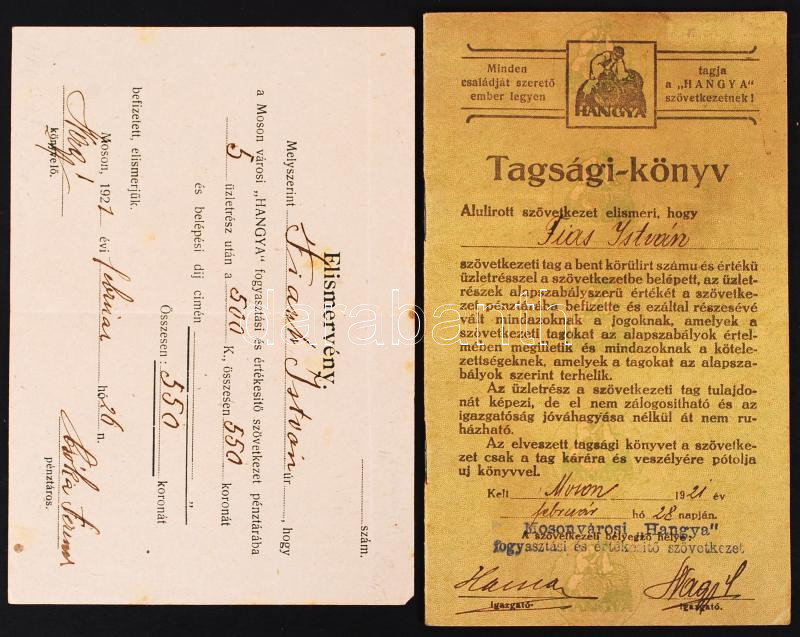 szám.
Elismervény,
Melyszerint István úr, hogy
a Moson városi „HANGYA" fogyasztási és értékesitő szövetkezet pénztárába
5 üzletrész után a 500 K., összesen 550 koronát
és belépési dij cimén „
Összesen: 550 koronát
befizetett, elismerjük.
Moson, 1921 évi február hó 26 n.
könyvelő.
pénztáros.
Minden
családját szerető
ember legyen
HANGYA
tagja
a „HANGYA"
szövetkezetnek!
Tagsági-könyv
Alulirott szövetkezet elismeri, hogy
Fias István
szövetkezeti tag a bent körülirt számu és értékü
üzletrésszel a szövetkezetbe belépett, az üzlet-
részek alapszabályszerü értékét a szövetke-
zet pénztárába befizette és ezáltal részesévé
vált mindazoknak a jogoknak, amelyek a
szövetkezeti tagokat az alapszabályok értel-
mében megilletik és mindazoknak a kötele-
zettségeknek, amelyek a tagokat az alapsza-
bályok szerint terhelik.
Az üzletrész a szövetkezeti tag tulajdo-
nát képezi, de el nem zálogositható és az
igazgatóság jóváhagyása nélkül át nem ru-
házható.
Az elveszett tagsági könyvet a szövetke-
zet csak a tag kárára és veszélyére pótolja
uj könyvvel.
Kelt Moson 1921 évi
február hó 28 napján.
Mosonvárosi „Hangya"
A szövetkezeti bélyegző helye:
fogyasztási és értékesitő szövetkezet
igazgató.
igazgató.
HANGYA
darabanth